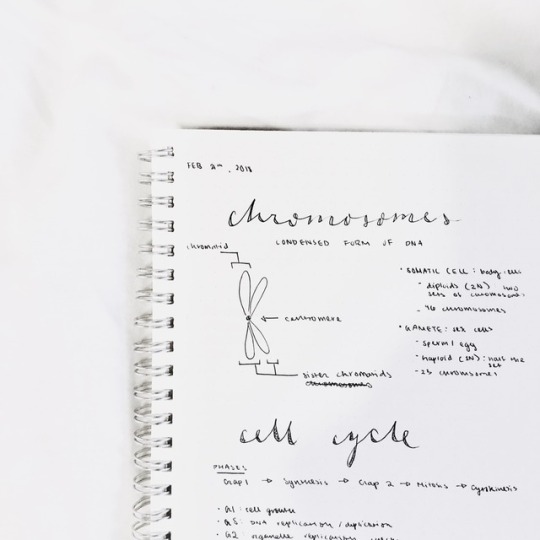 FEB 2nd, 2018
chromosomes
CONDENSED FORM OF DNA
chromatid
centromere
sister chromatids
chromosomes
• SOMATIC CELL: body cells
- diploids (2N) two
sets of chromosomes
- 46 chromosomes
• GAMETE: sex cells
- sperm/egg
- haploid (1N): half the
set
- 23 chromosomes
cell cycle
PHASES
Gap 1 → Synthesis → Gap 2 → Mitosis → Cytokinesis
• G1: cell growth
• G5: DNA replication / duplication
• G2: organelle replication